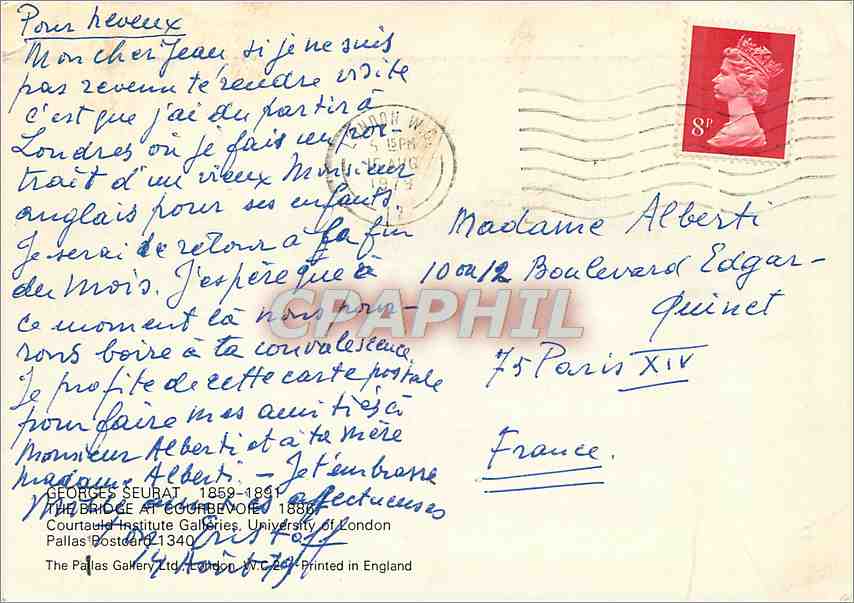 Pour neveux
Mon cher Jean si je ne suis
pas revenu te rendre visite
c'est que j'ai du partir à
Londres où je fais un por-
trait d'un vieux Monsieur
anglais pour ses enfants
Je serai de retour à la fin
du Mois. J'espère que à
ce moment là nous pour-
rons boire à ta convalescence
Je profite de cette carte postale
pour faire mes amitiés à
Monsieur Alberti et à ta mère
Madame Alberti. - Je t'embrasse
affectueuses
14 Août 79
GEORGES SEURAT 1859-1891
THE BRIDGE AT COURBEVOIE 1886
Courtauld Institute Galleries, University of London
Pallas Postcard 1340
The Pallas Gallery Ltd., London, W.C.2 - Printed in England
LONDON W.C.
5 15 PM
AUG
1979
8P
Madame Alberti
10 ou 12 Boulevard Edgar-
Quinet
75 Paris XIV
France.
CPAPHIL